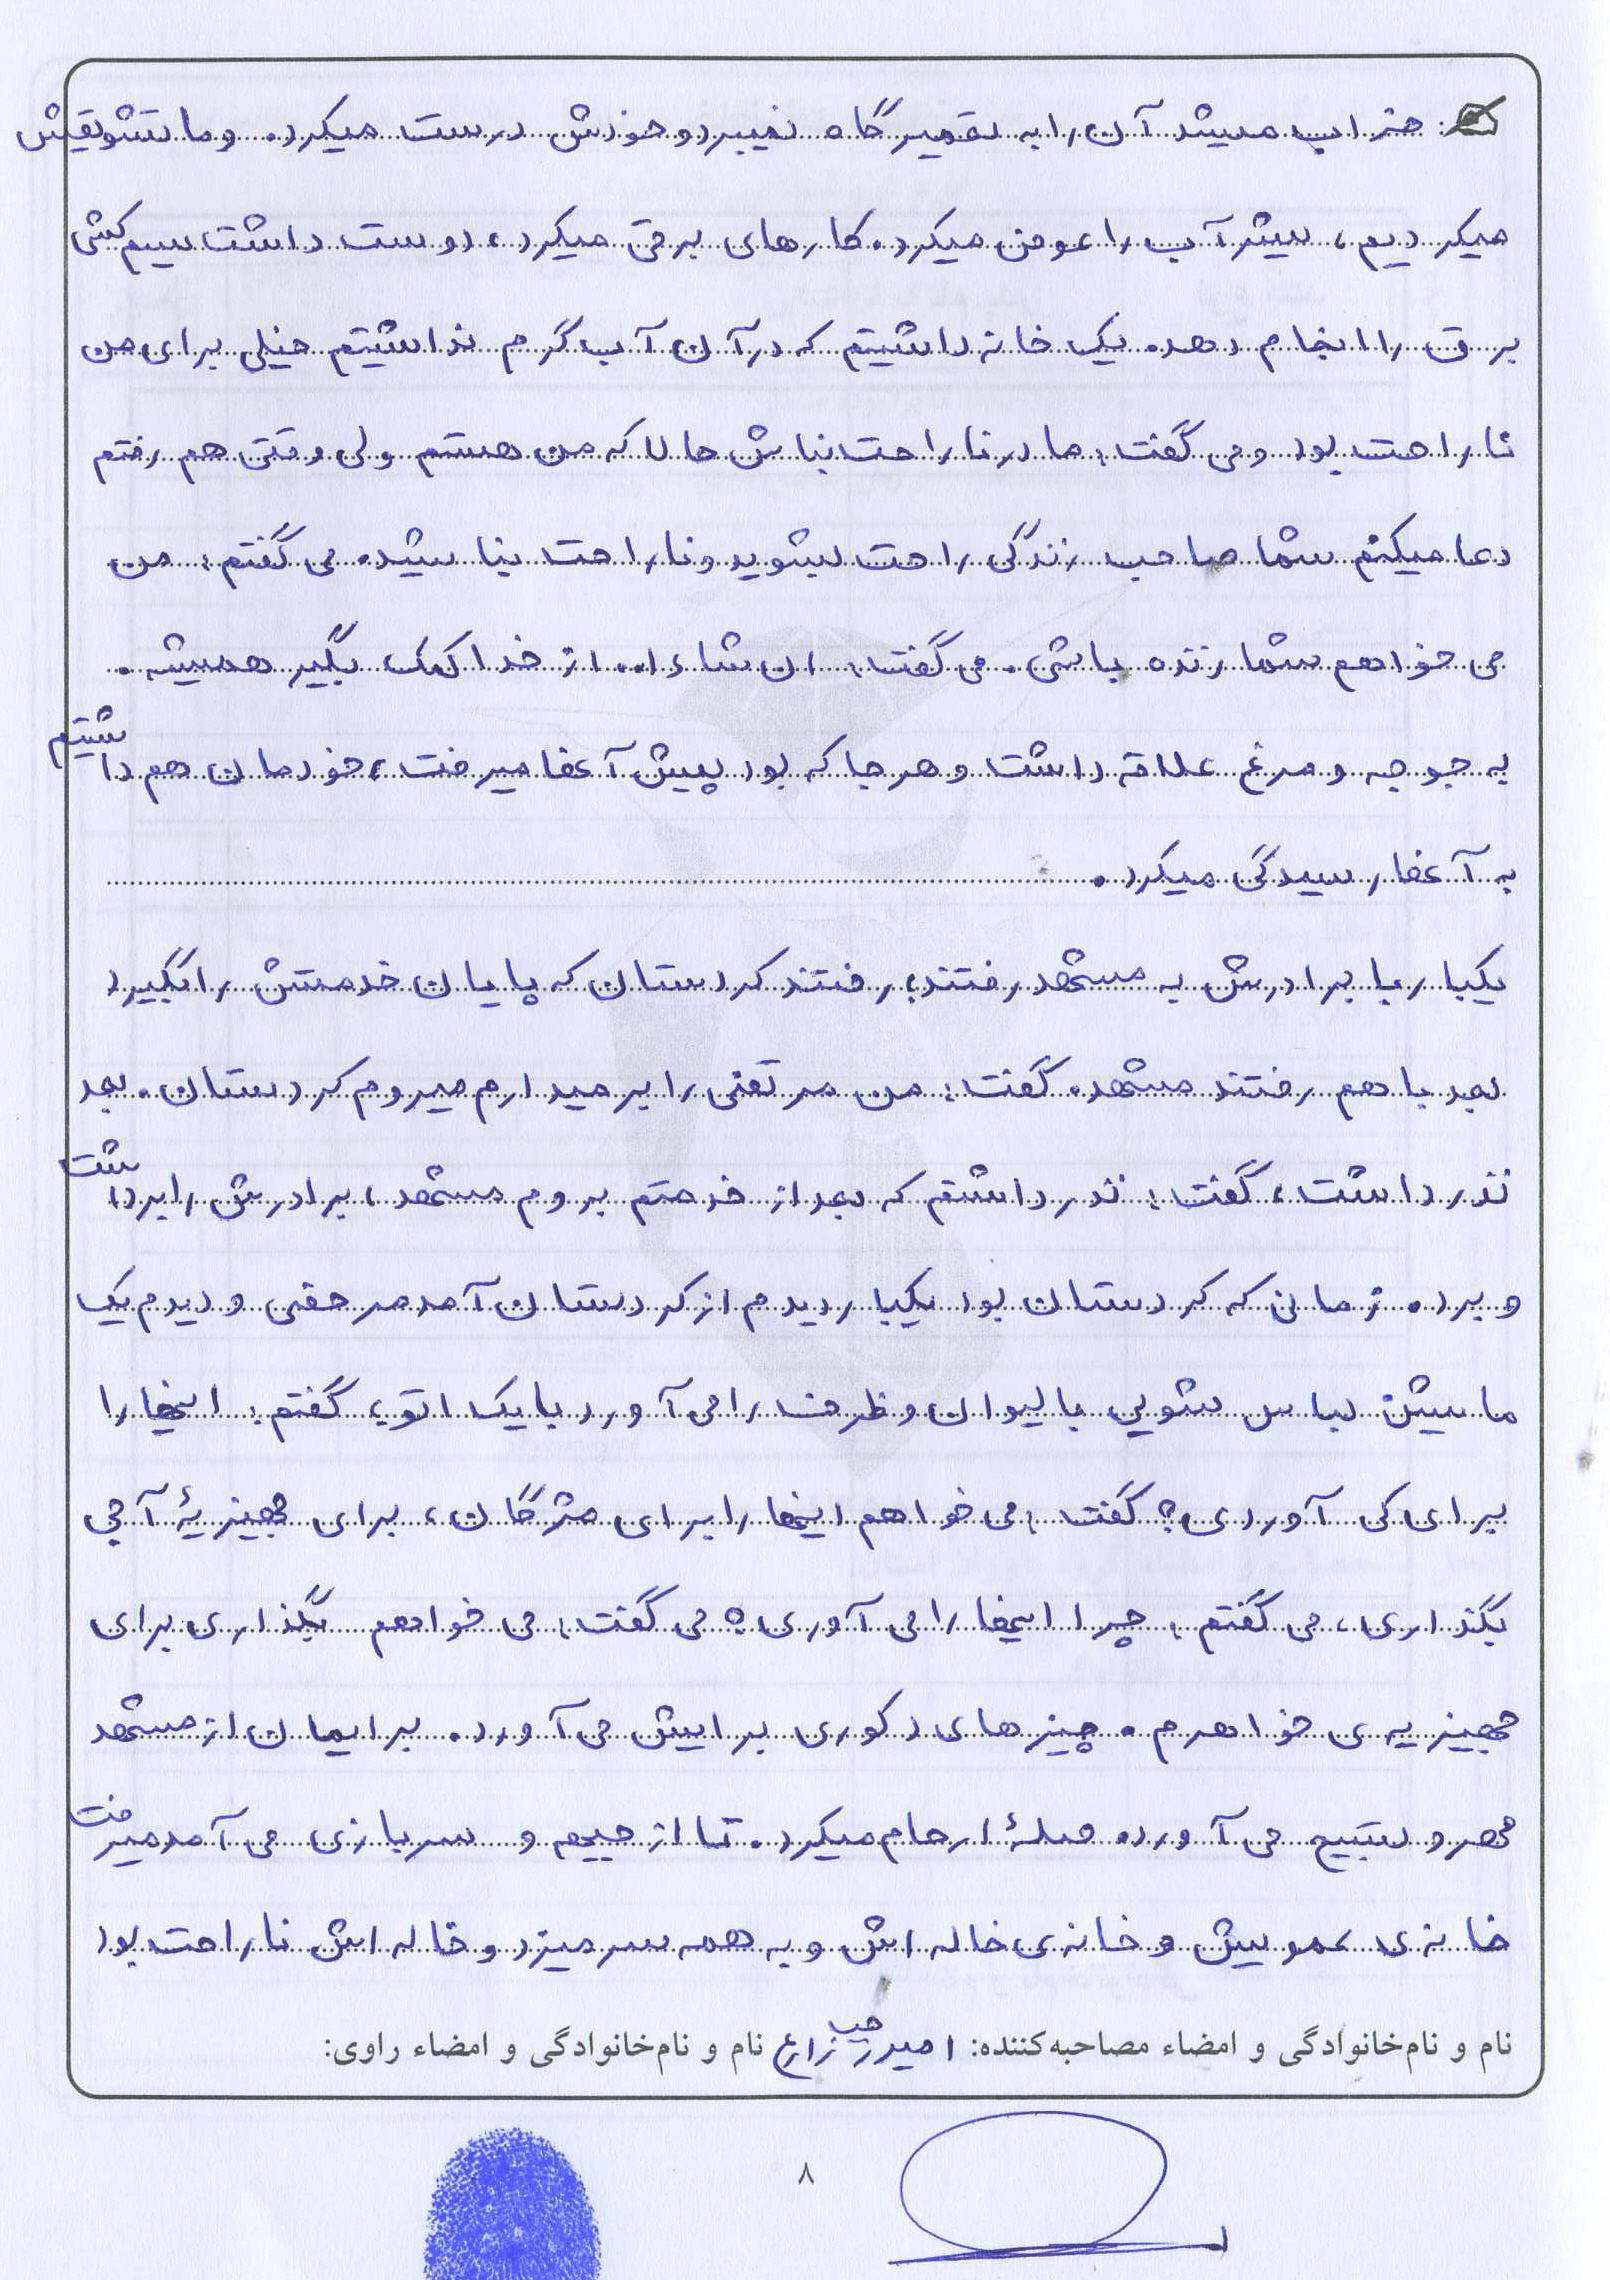 خراب میشد آن را به تعمیرگاه نمیبرد و خودش درست میکرد. و ما تشویقش
میکردیم، شیر آب را عوض میکرد. کارهای برقی میکرد، دوست داشت سیم کشی
برق را انجام دهد. یک خانه داشتیم که در آن آب گرم نداشتیم خیلی برای من
ناراحت بود و می گفت: مادر ناراحت نباش حالا که من هستم ولی وقتی هم رفتم
دعا میکنم شما صاحب زندگی راحت بشوید و ناراحت نباشید. می گفتم: من
می خواهم شما زنده باشی. می گفت: ان شاءا... از خدا کمک بگیر همیشه.
به جوجه و مرغ علاقه داشت و هر جا که بود پیش آنها میرفت، خودمان هم داشتیم
به آنها رسیدگی میکرد.
یکبار با برادرش به مشهد رفتند، رفتند کردستان که پایان خدمتش را بگیرد
بعد با هم رفتند مشهد. گفت: من مرتضی را برمیدارم میروم کردستان. بعد
نذر داشت، گفت: نذر داشتم که بعد از خدمتم بروم مشهد، برادرش را برداشت
و برد. زمانی که کردستان بود یکبار دیدم از کردستان آمد مرخصی و دیدم یک
ماشین لباس شویی با لیوان و ظرف را می آورد با یک اتو، گفتم: اینها را
برای کی آوردی؟ گفت: می خواهم اینها را برای مژگان، برای جهیزیهٔ آجی
بگذاری، می گفتم: چرا اینها را می آوری؟ می گفت: می خواهم بگذاری برای
جهیزیه ی خواهرم. چیزهای دکوری برایش می آورد. برایمان از مشهد
مهر و تسبیح می آورد. صلهٔ ارحام میکرد. تا از جبهه و سربازی می آمد میرفت
خانه ی عمویش و خانه ی خاله اش و به همه سر میزد و خاله اش ناراحت بود
نام و نام‌خانوادگی و امضاء مصاحبه‌کننده: امیر زارع نام و نام‌خانوادگی و امضاء راوی:
۸